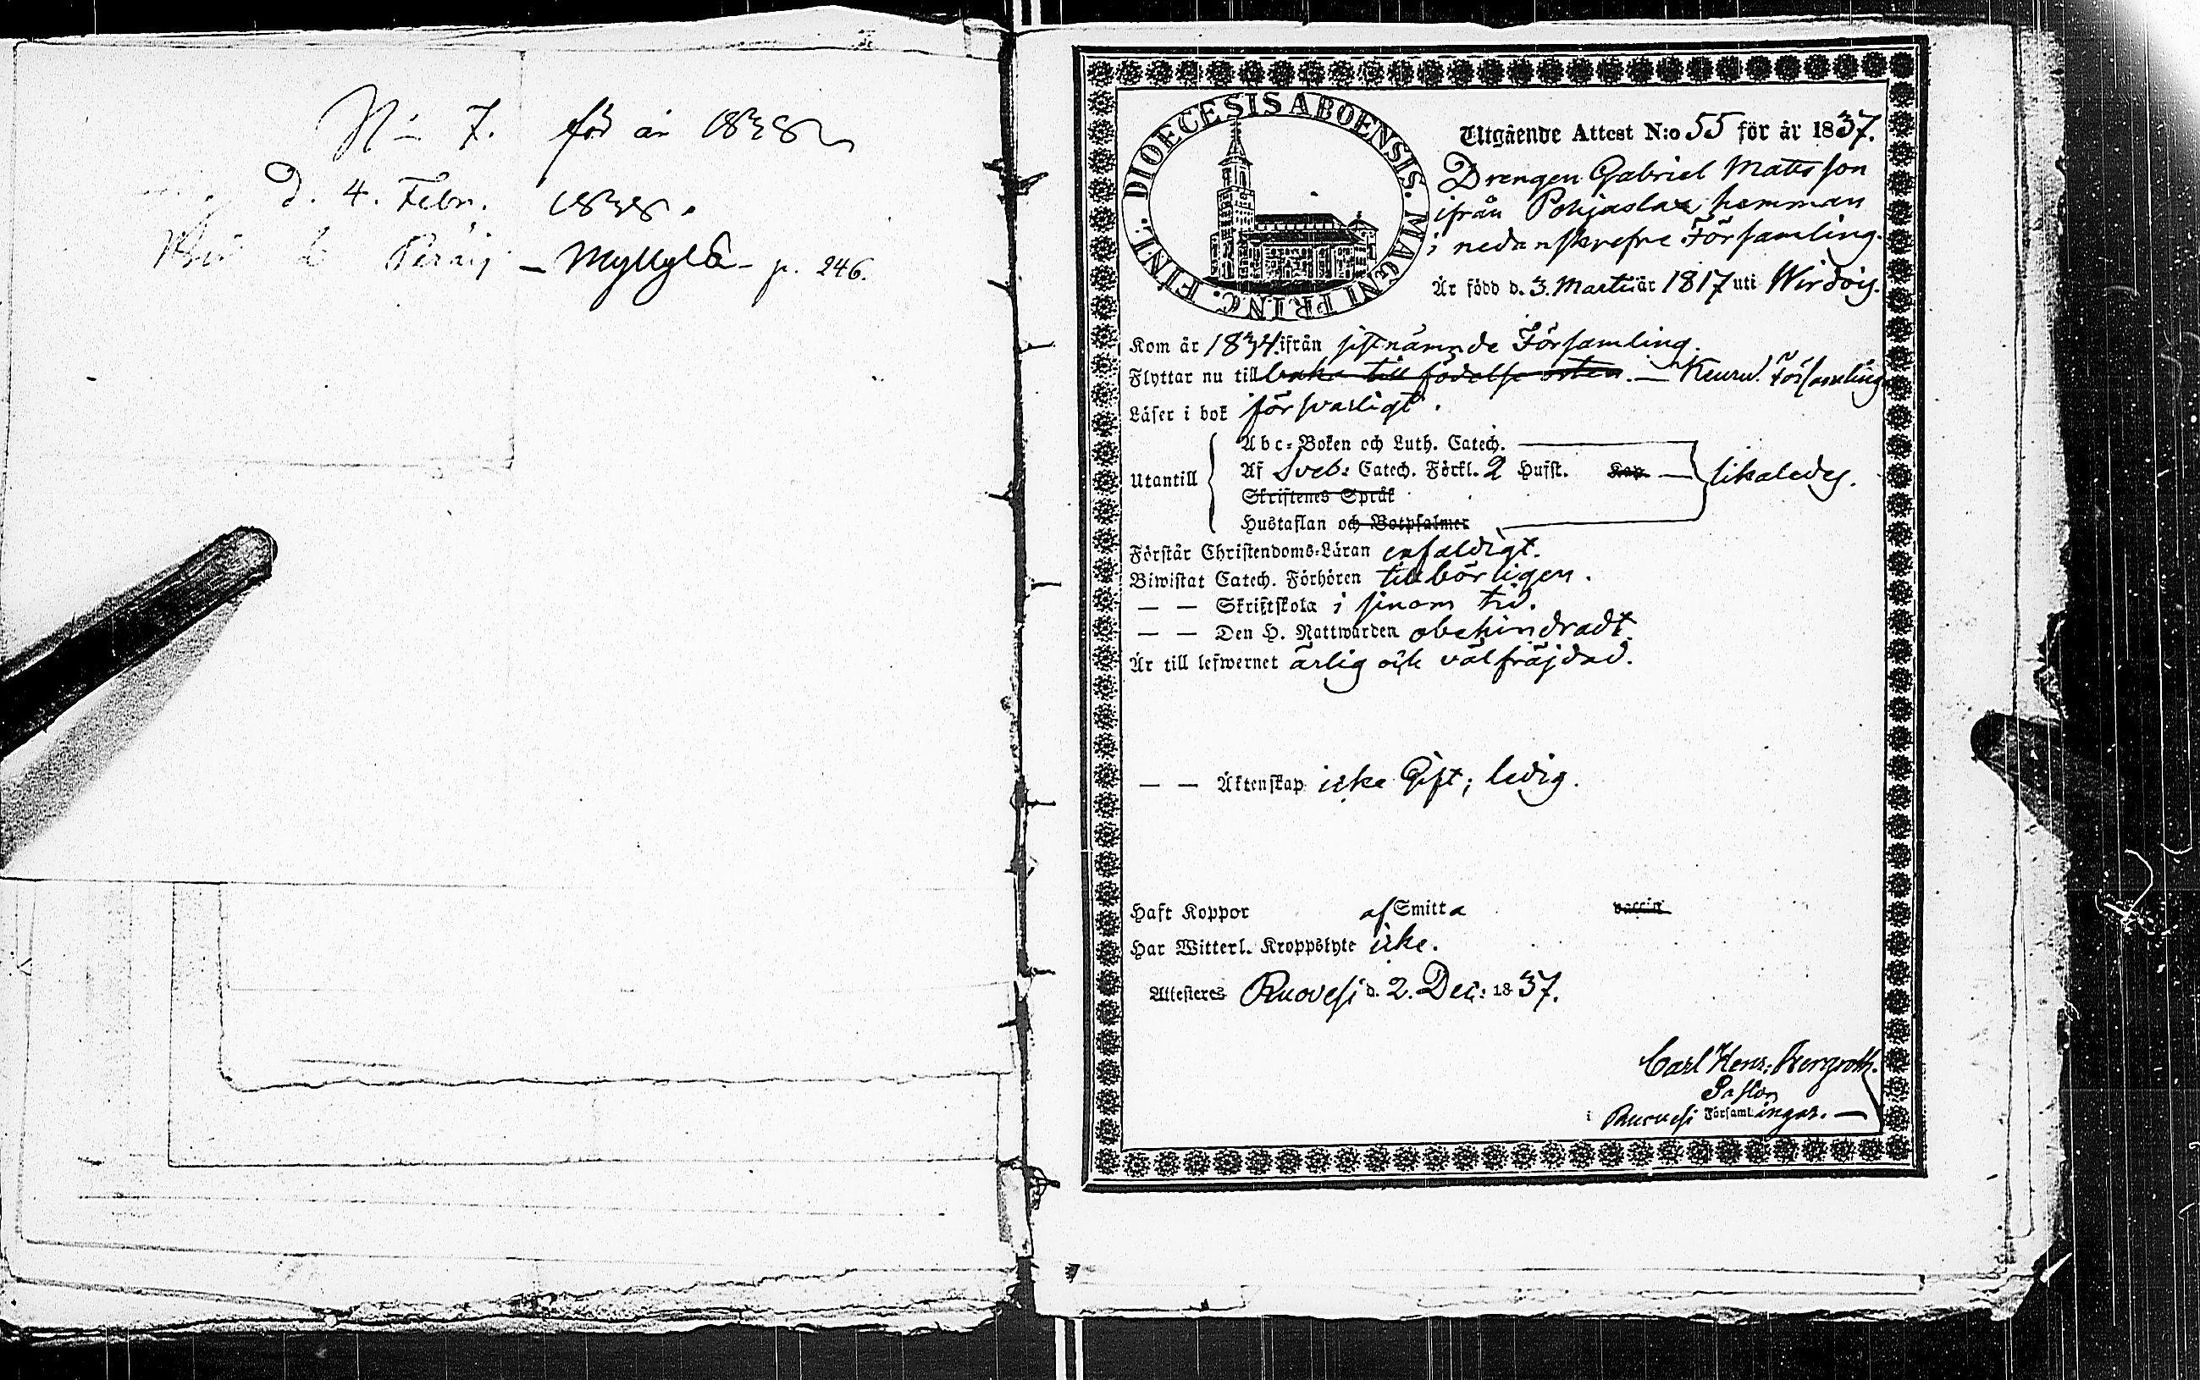 N:o 7. för år 1838
d. 4. Febr. 1838.
Peräij - Myllylä - p. 246.
DIOECESIS ABOENSIS. MAGNI PRINC. FINL.
Utgående Attest N:o 55 för år 1837.
Drengen Gabriel Matsson
ifrån Pohjaslax hemman
i nedanskrefne Församling.
Är född d. 3. Martii år 1817 uti Wirdois.
Kom år 1834. ifrån sistnämnde Församling.
Flyttar nu till baka till födelse orten. — Keuru. Församling
Läser i bok försvarligt.
Utantill
Abc-Boken och Luth. Catech.
Af Sveb: Catech. Förkl. 2 Hufst. Kap — likaledes.
Skriftenes Språk
Hustaflan och Botpsalmer
Förstår Christendoms-Läran enfaldigt.
Biwistat Catech. Förhören tillbörligen.
— — Skriftskola i sinom tid.
— — Den H. Nattwarden obehindradt.
Är till lefwernet ärlig och välfräjdad.
— — Äktenskap icke Gift; ledig.
Haft Koppor af Smitta vaccin
Har Witterl. Kroppslyte icke.
Attesteres Ruovesi d. 2. Dec: 1837.
Carl Henr: Bergroth.
Pastor
i Ruovesi Församlingar. —